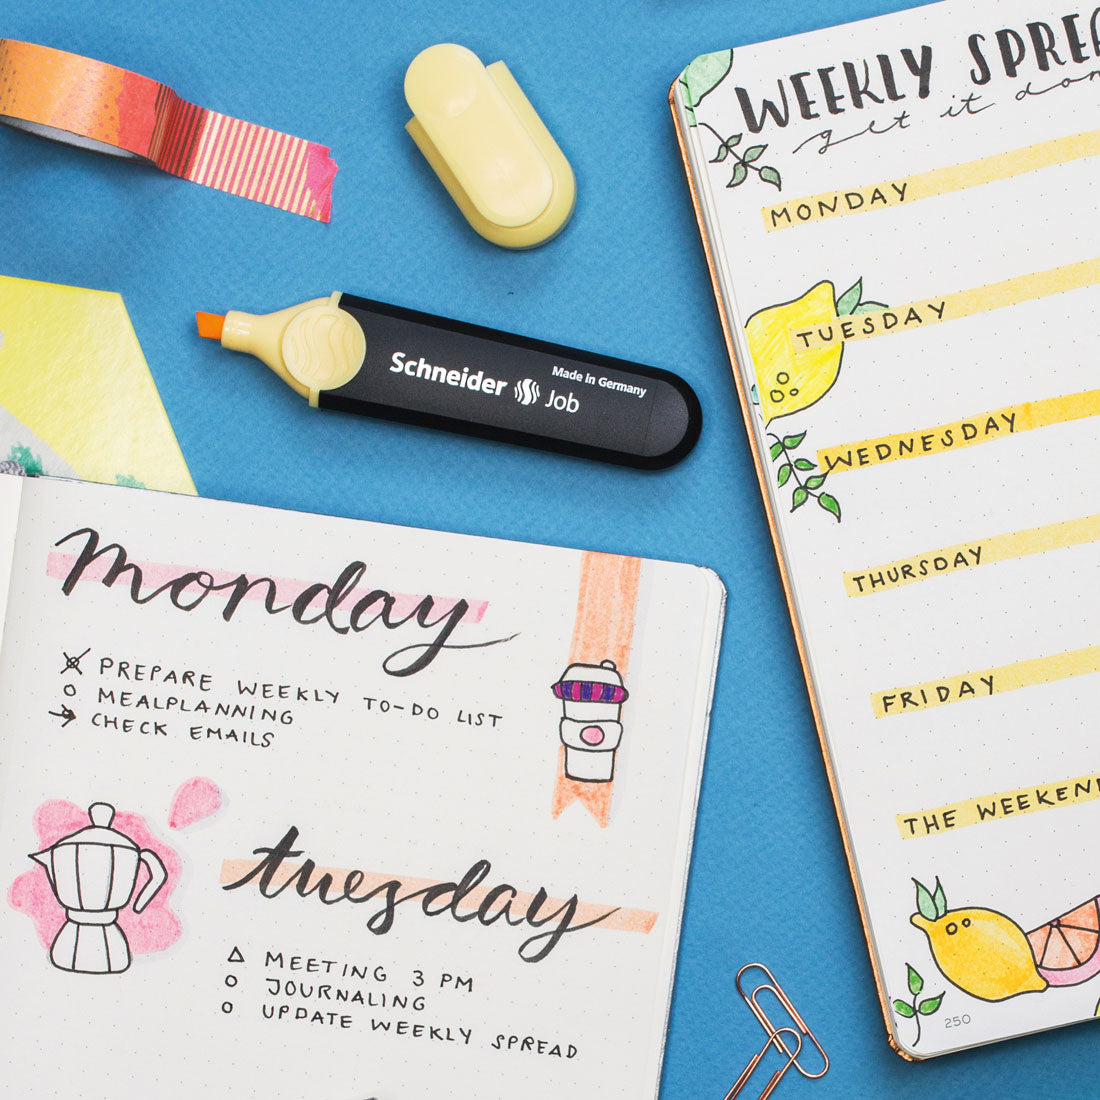 WEEKLY SPREA
get it don
MONDAY
TUESDAY
WEDNESDAY
THURSDAY
FRIDAY
THE WEEKEND
250
Schneider Job
Made in Germany
monday
PREPARE WEEKLY TO-DO LIST
MEALPLANNING
CHECK EMAILS
tuesday
MEETING 3 PM
JOURNALING
UPDATE WEEKLY SPREAD